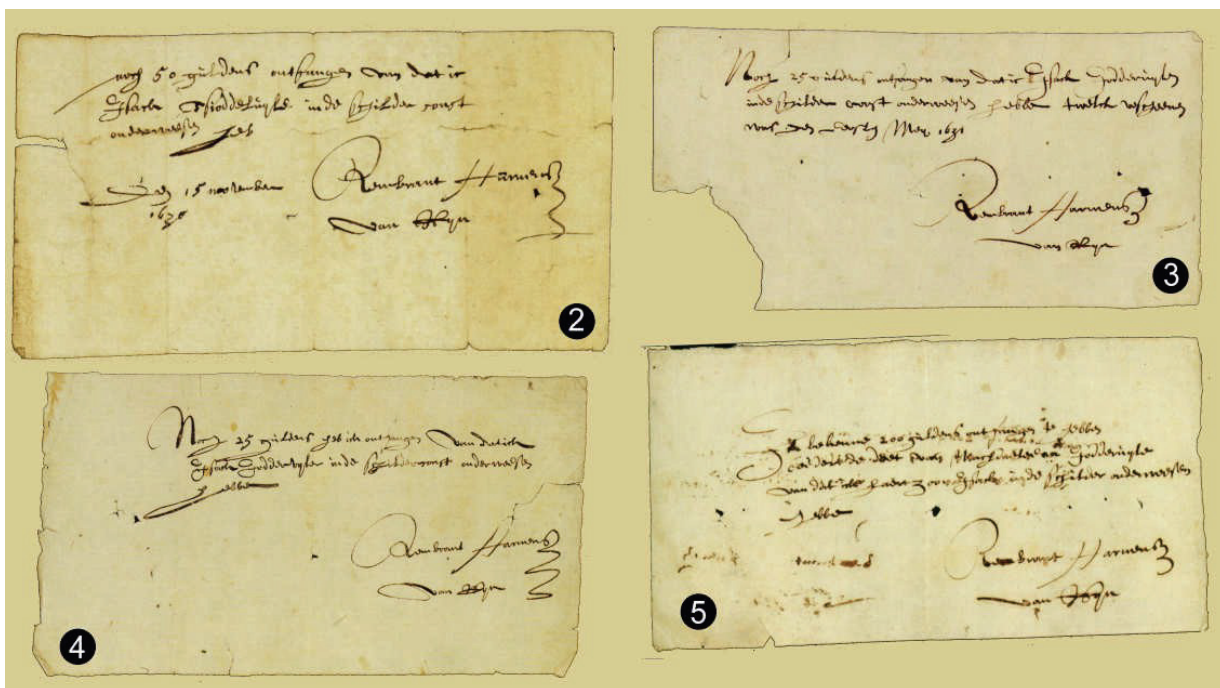 noch 50 guldens ontfangen van dat ic
Isack inde schilder const
onderweesen heb
Den 15 november
1630
Rembrant Harmensz
van Rijn
2
Noch 25 guldens ontfangen van dat ic Isack Jodderuylen
inde schilder const onderweesen hebbe twelck verscheenen
was den May 1631
Rembrant Harmensz
van Rijn
3
Noch 25 guldens heb ick ontfangen van dat ick
Isack Jodderuylen inde schilderconst onderweesen
hebbe
Rembrant Harmensz
van Rijn
4
Ick bekenne 200 guldens ontfangen te hebben
van dat ick haer zoon Isack inde schilder onderweesen
hebbe
Rembrant Harmensz
van Rijn
5